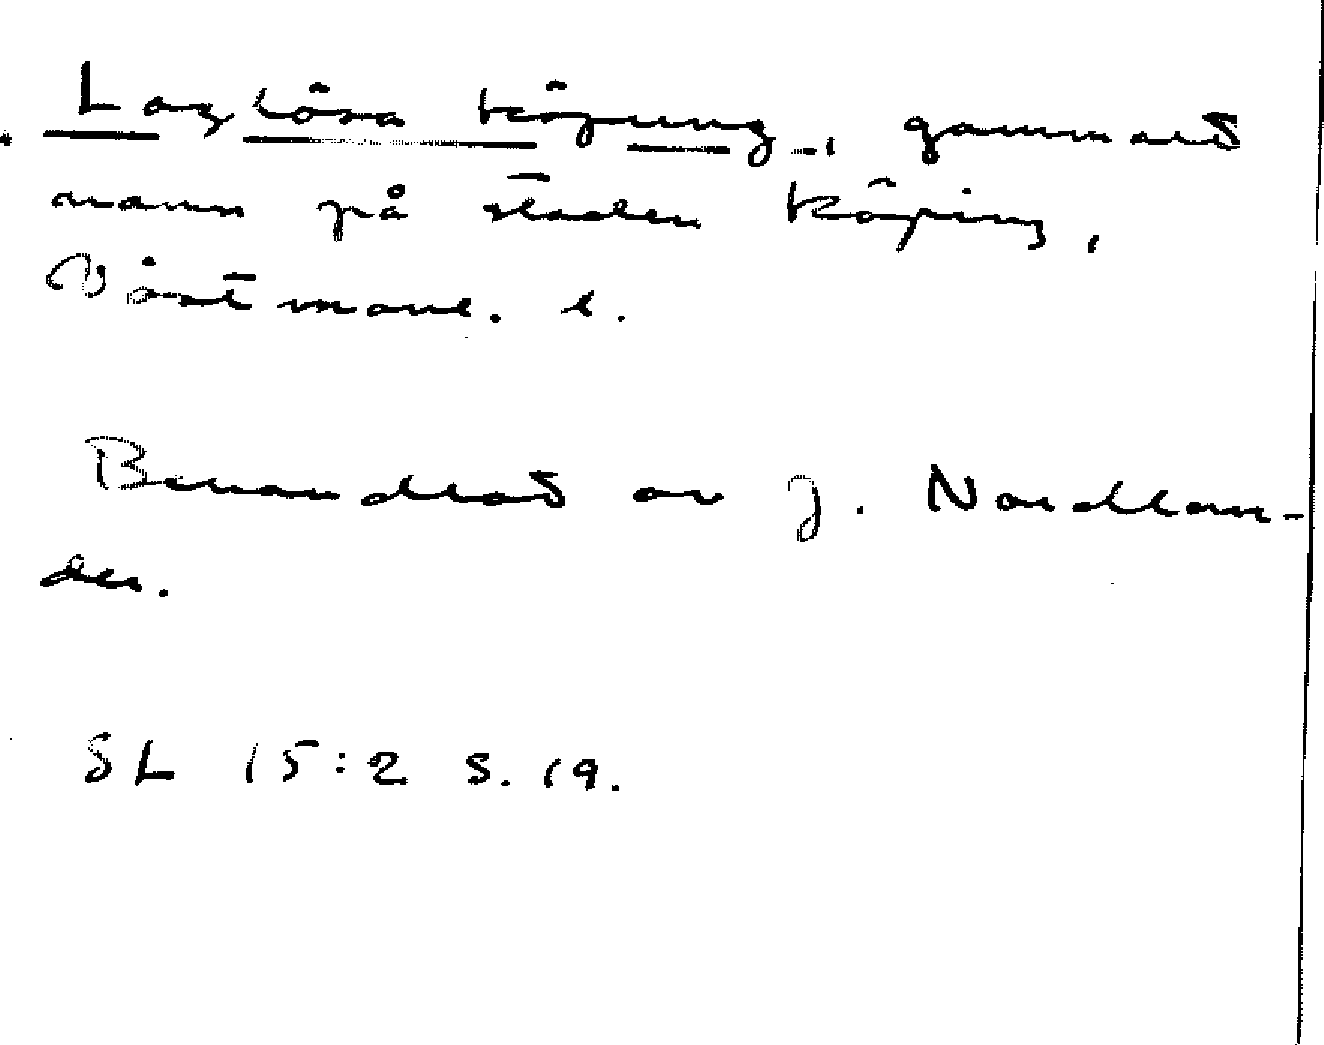 Laglösa köpung -, gammalt
namn på staden Köping,
Västmanl. l.
Behandlat av J. Nordlan-
der.
SL 15:2 s. 19.